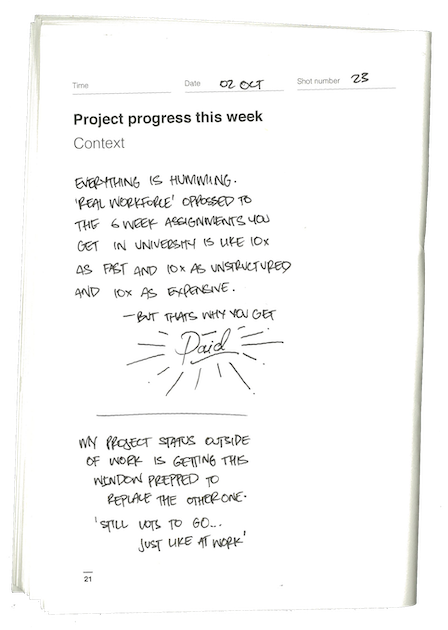 Time Date 02 OCT Shot number 23
Project progress this week
Context
EVERYTHING IS HUMMING.
'REAL WORKFORCE' OPPOSED TO
THE 6 WEEK ASSIGNMENTS YOU
GET IN UNIVERSITY IS LIKE 10x
AS FAST AND 10x AS UNSTRUCTURED
AND 10x AS EXPENSIVE.
—BUT THATS WHY YOU GET
Paid
MY PROJECT STATUS OUTSIDE
OF WORK IS GETTING THIS
WINDOW PREPPED TO
REPLACE THE OTHER ONE.
'STILL LOTS TO GO...
JUST LIKE AT WORK'
21